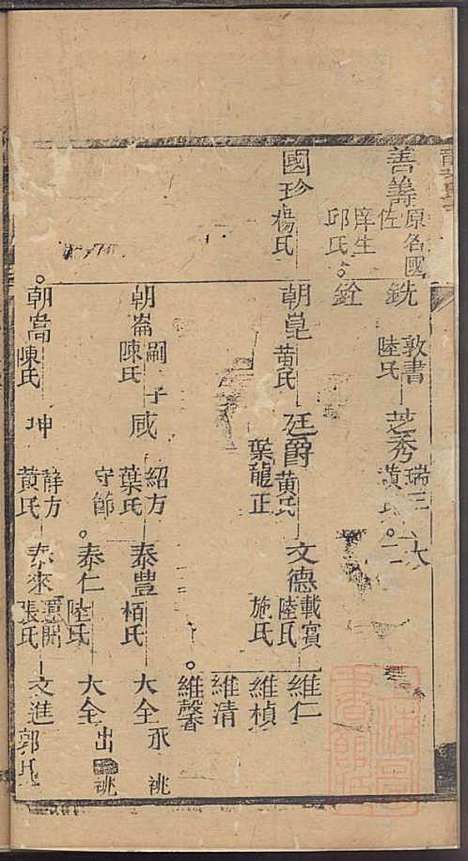 善籌原名國佐庠生邱氏
銑敦書陸氏
芝秀瑞三黃氏
銓
國珍楊氏
朝崑黃氏
廷爵黃氏葉龍正
文德載賓陸氏施氏
維仁
維楨
維清
維馨
朝崙嗣子陳氏
咸紹方葉氏守節
泰豊栢氏
大全承祧
泰仁陸氏
大全出祧
朝嵩陳氏
坤靜方黃氏
泰來張氏
文進郭氏